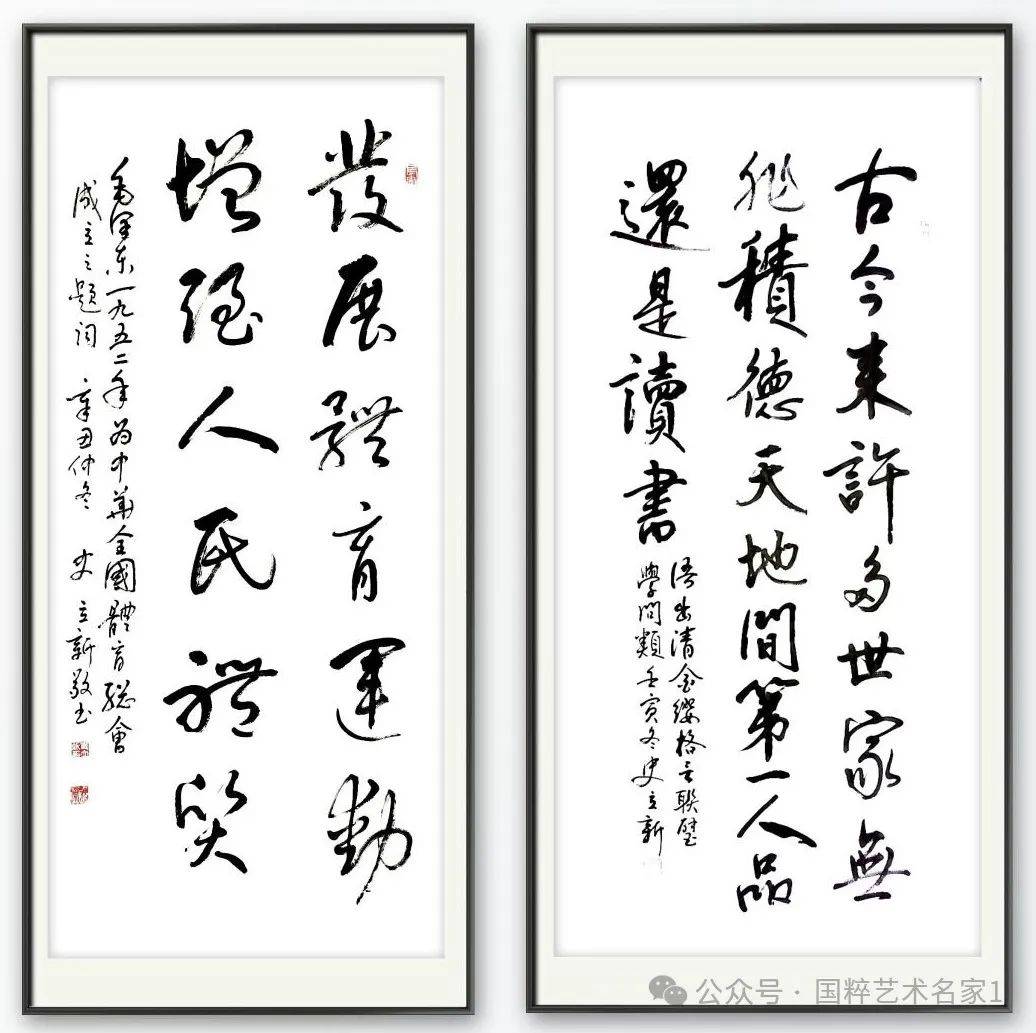 發展體育運動
增强人民體質
毛澤东一九五二年为中華全國體育總會
成立之題詞 辛丑仲冬 史立新敬书
古今来許多世家無
非積德天地間第一人品
還是讀書
语出清金缨格言聯璧
學问類壬寅冬史立新
公众号 · 国粹艺术名家1